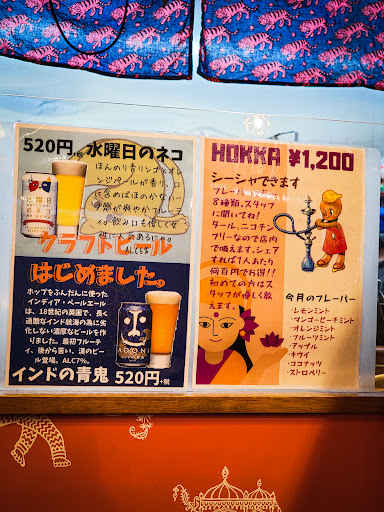 520円 水曜日のネコ
ほんのり青リンゴとオレ
ンジピールが香り、口
に含めばほのかなハー
クラフトビール
はじめました。
ホップをふんだんに使った
インディア・ペールエール
は、18世紀の英国で、長く
過酷なインド航海の為に劣
化しない濃厚なビールを作
りました。最初フルーテ
ィ、後から苦い、漢のビー
ル登場。ALC7%。
インドの青鬼 520円+税
水曜日
AOONI
HOKKA ¥1,200
シーシャできます
フレーバー
8種類。スタッフ
に聞いてね!
タール、ニコチン
フリーなので店内
で吸えます。シェア
すれば1人あたり
何百円でお得!!
初めての方はス
タッフが優しく教
えます。
今月のフレーバー
・レモンミント
・マンゴーピーチミント
・オレンジミント
・フルーツミント
・アップル
・キウイ
・ココナッツ
・ストロベリー